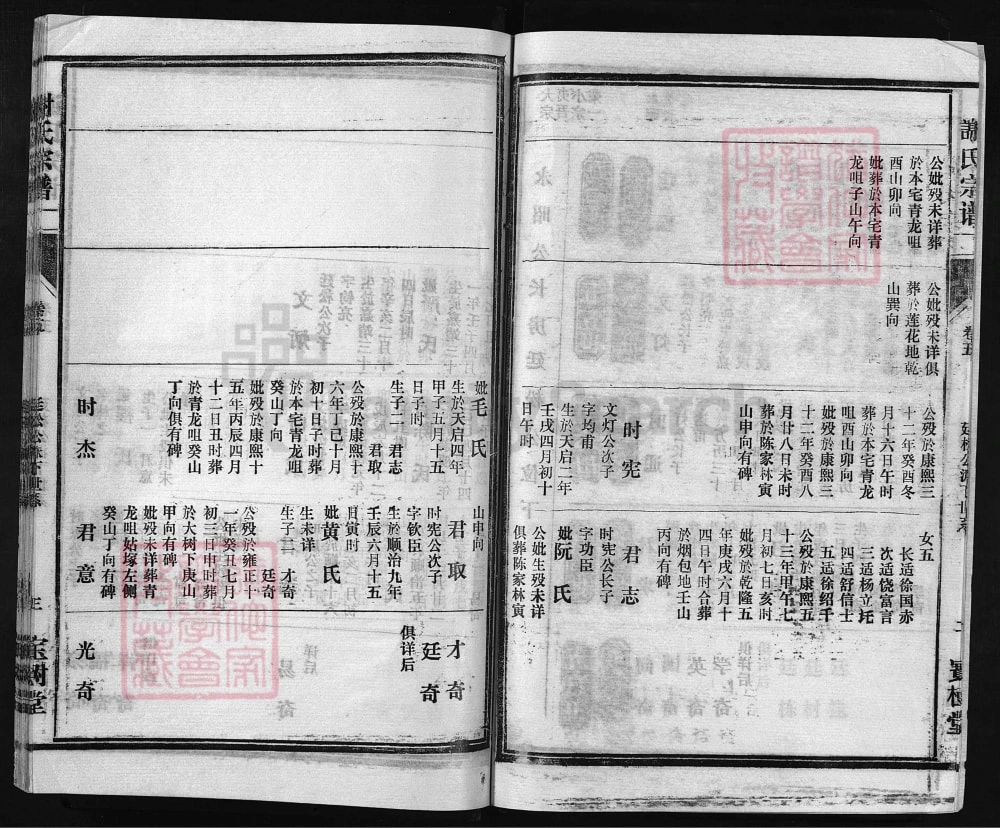 谢氏宗谱
卷五
宝树堂
公妣殁未详葬
於本宅青龙咀
酉山卯向
妣葬於本宅青
龙咀子山午向
公妣殁未详俱
葬於莲花地乾
山巽向
公殁於康熙三
十二年癸酉冬
月十六日午时
葬於本宅青龙
咀酉山卯向
妣殁於康熙三
十二年癸酉八
月廿八日未时
葬於陈家林寅
山申向有碑
时宪
文灯公次子
字均甫
生於天启二年
壬戌四月初十
日午时
女五
长适徐国赤
次适饶富言
三适杨立圫
四适舒信士
五适徐绍千
公殁於康熙五
十三年甲午七
月初七日亥时
妣殁於乾隆五
年庚戌六月十
四日午时合葬
於烟包地壬山
丙向有碑
君志
时宪公长子
字功臣
妣阮氏
公妣生殁未详
俱葬陈家林寅
山申向
妣毛氏
生於天启四年
甲子五月十五
日子时
生子二 君志
君取
公殁於康熙十
六年丁巳十月
初十日子时葬
於本宅青龙咀
癸山丁向
妣殁於康熙十
五年丙辰四月
十二日丑时葬
於青龙咀癸山
丁向俱有碑
时杰
君取
时宪公次子
字钦臣
生於顺治九年
壬辰六月十五
日寅时
妣黄氏
生未详
生子三 才奇
廷奇
公殁於雍正十
一年癸丑七月
初三日申时葬
於大树下庚山
甲向有碑
妣殁未详葬青
龙咀姑塚左侧
癸山丁向有碑
君意
才奇
廷奇
俱详后
光奇
谢氏宗谱
卷五
宝树堂